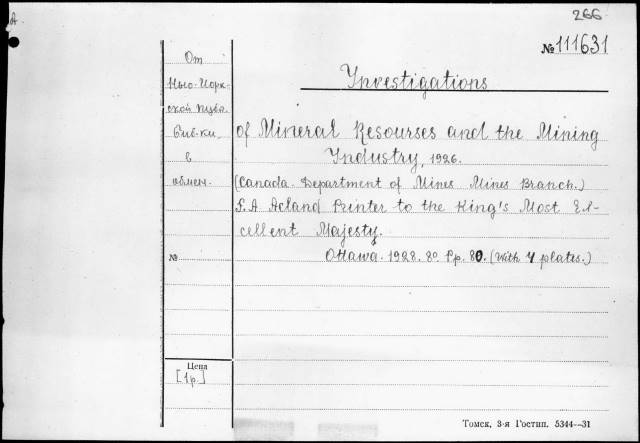 А
266
№111631
От
Нью-Иорк-
ской Публ.
Биб-ки
в
обмен.
Investigations
of Mineral Resourses and the Mining
Industry, 1926.
(Canada. Department of Mines Mines Branch.)
F.A Acland Printer to the King's Most Ex-
cellent Majesty.
№
Ottawa. 1928. 8º. Pp. 80. (With 4 plates.)
Цена
[1р.]
Томск, 3-я Гостип. 5344—31